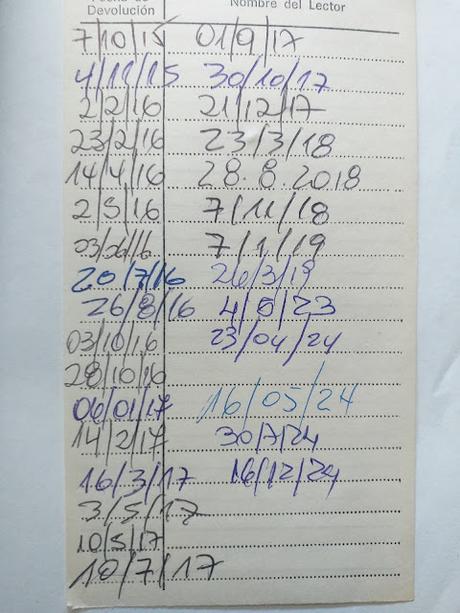 Fecha de Nombre del Lector
Devolución
7/10/15 01/9/17
4/11/15 30/10/17
2/2/16 21/12/17
23/2/16 23/3/18
14/4/16 28.8.2018
2/5/16 7/11/18
03/06/16 7/1/19
20/7/16 26/3/19
26/8/16 4/5/23
03/10/16 23/04/24
28/10/16
06/01/17 16/05/24
14/2/17 30/7/24
16/3/17 16/12/24
3/5/17
10/5/17
10/7/17